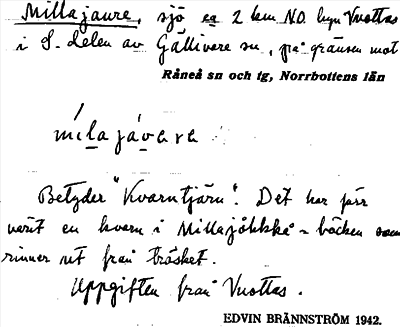 Millajaure, sjö ca 2 km N.O. byn Vuottas
i S. delen av Gällivare sn, på gränsen mot
Råneå sn och tg, Norrbottens län
mílajávare
Betyder "Kvarntjärn". Det har förr
varit en kvarn i Millajåkkå - bäcken som
rinner ut från träsket.
Uppgiften från Vuottas.
EDVIN BRÄNNSTRÖM 1942.